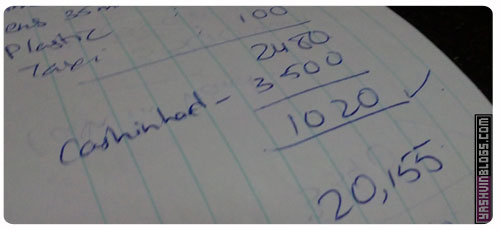 ens 35m
Plastic
Taxi 100
2480
Cashinhad - 3500
1020 ✓
20,155
YASHVINBLOGS.COM